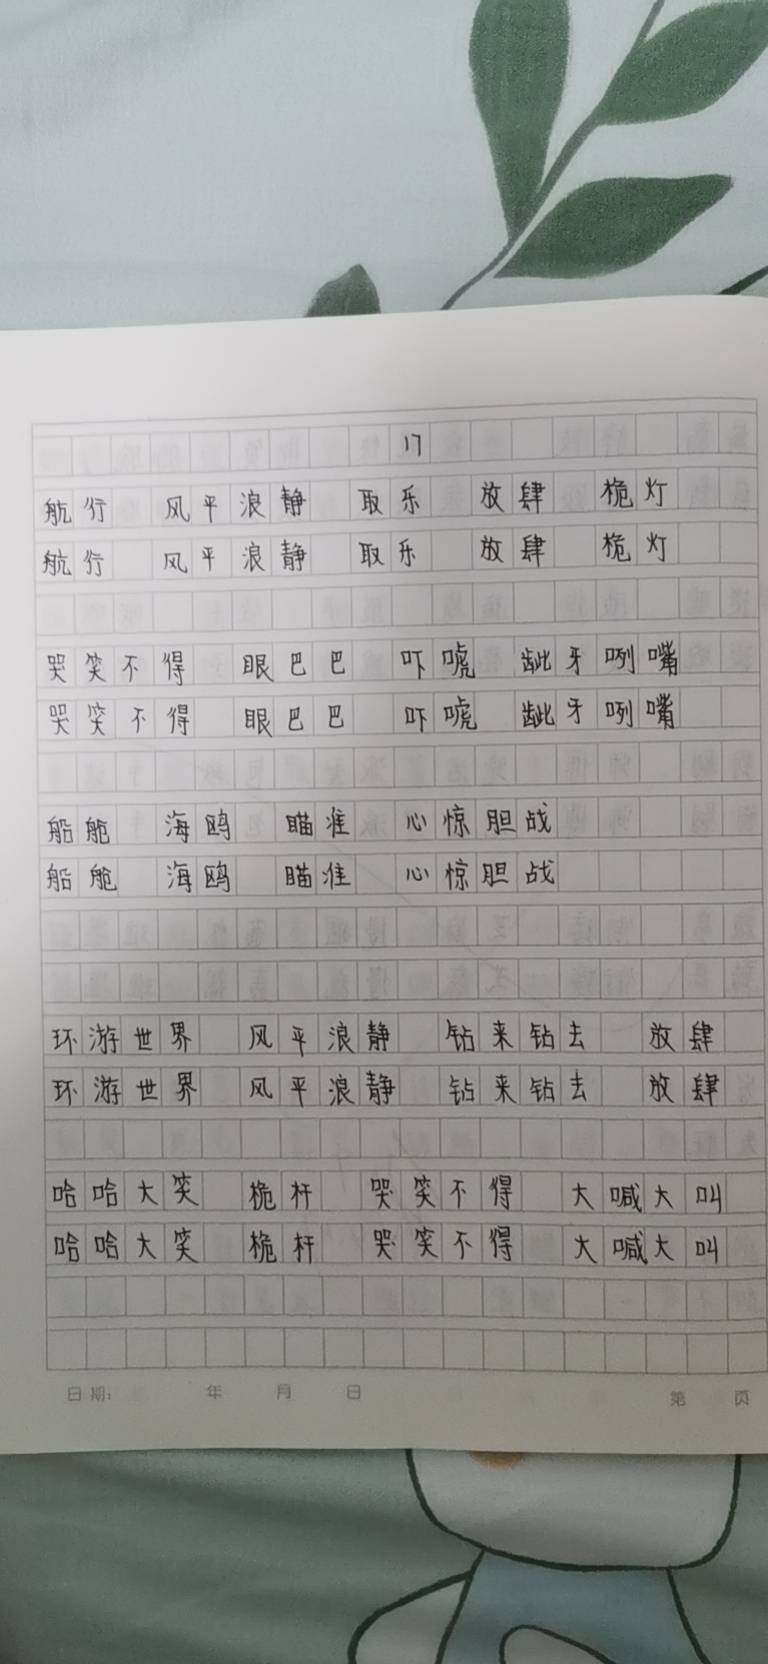 17
航行 风平浪静 取乐 放肆 桅灯
航行 风平浪静 取乐 放肆 桅灯
哭笑不得 眼巴巴 吓唬 龇牙咧嘴
哭笑不得 眼巴巴 吓唬 龇牙咧嘴
船舱 海鸥 瞄准 心惊胆战
船舱 海鸥 瞄准 心惊胆战
环游世界 风平浪静 钻来钻去 放肆
环游世界 风平浪静 钻来钻去 放肆
哈哈大笑 桅杆 哭笑不得 大喊大叫
哈哈大笑 桅杆 哭笑不得 大喊大叫
日期： 年 月 日 第 页